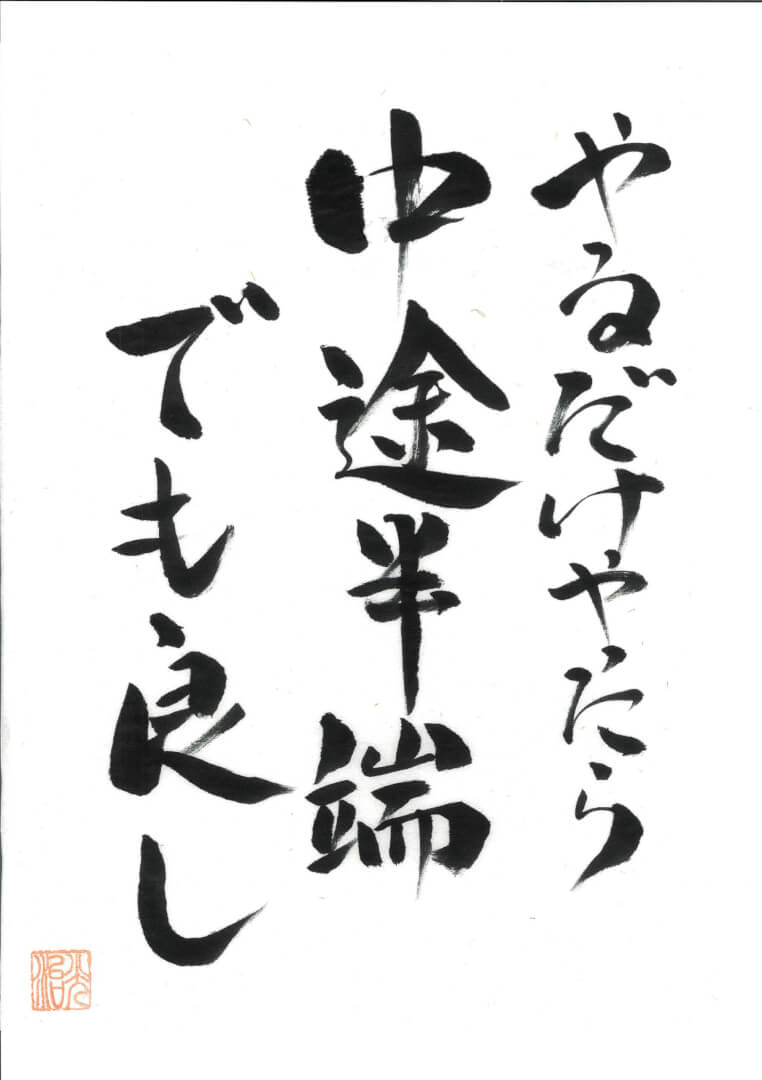 やるだけやたら
中途半端
でも良し